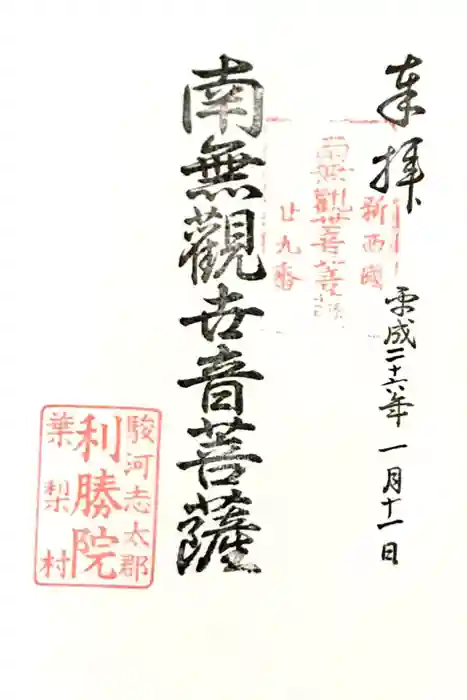 奉拝
平成二十六年 一月十一日
新西國
南無観世音菩薩
廿九番
南無觀世音菩薩
駿河志太郡
利勝院
葉梨村